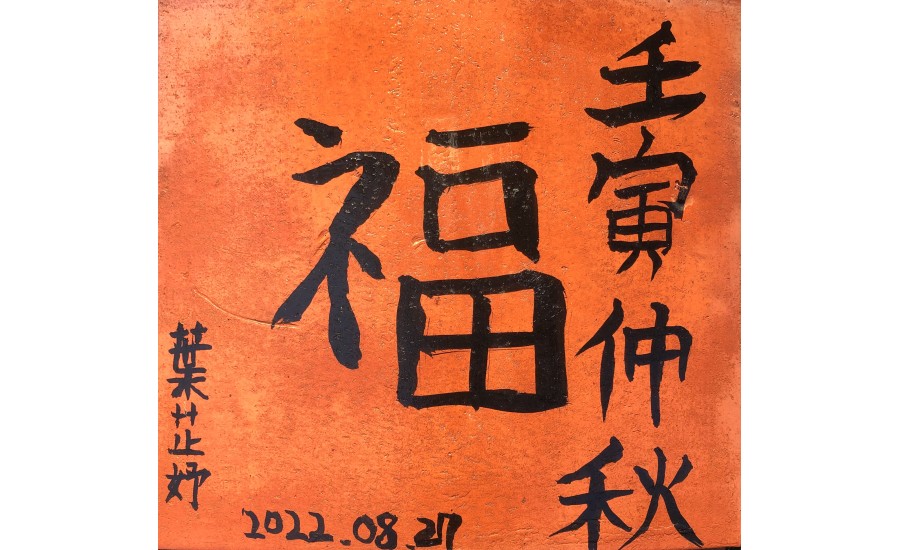 壬寅仲秋
福
葉芷妤
2022.08.27